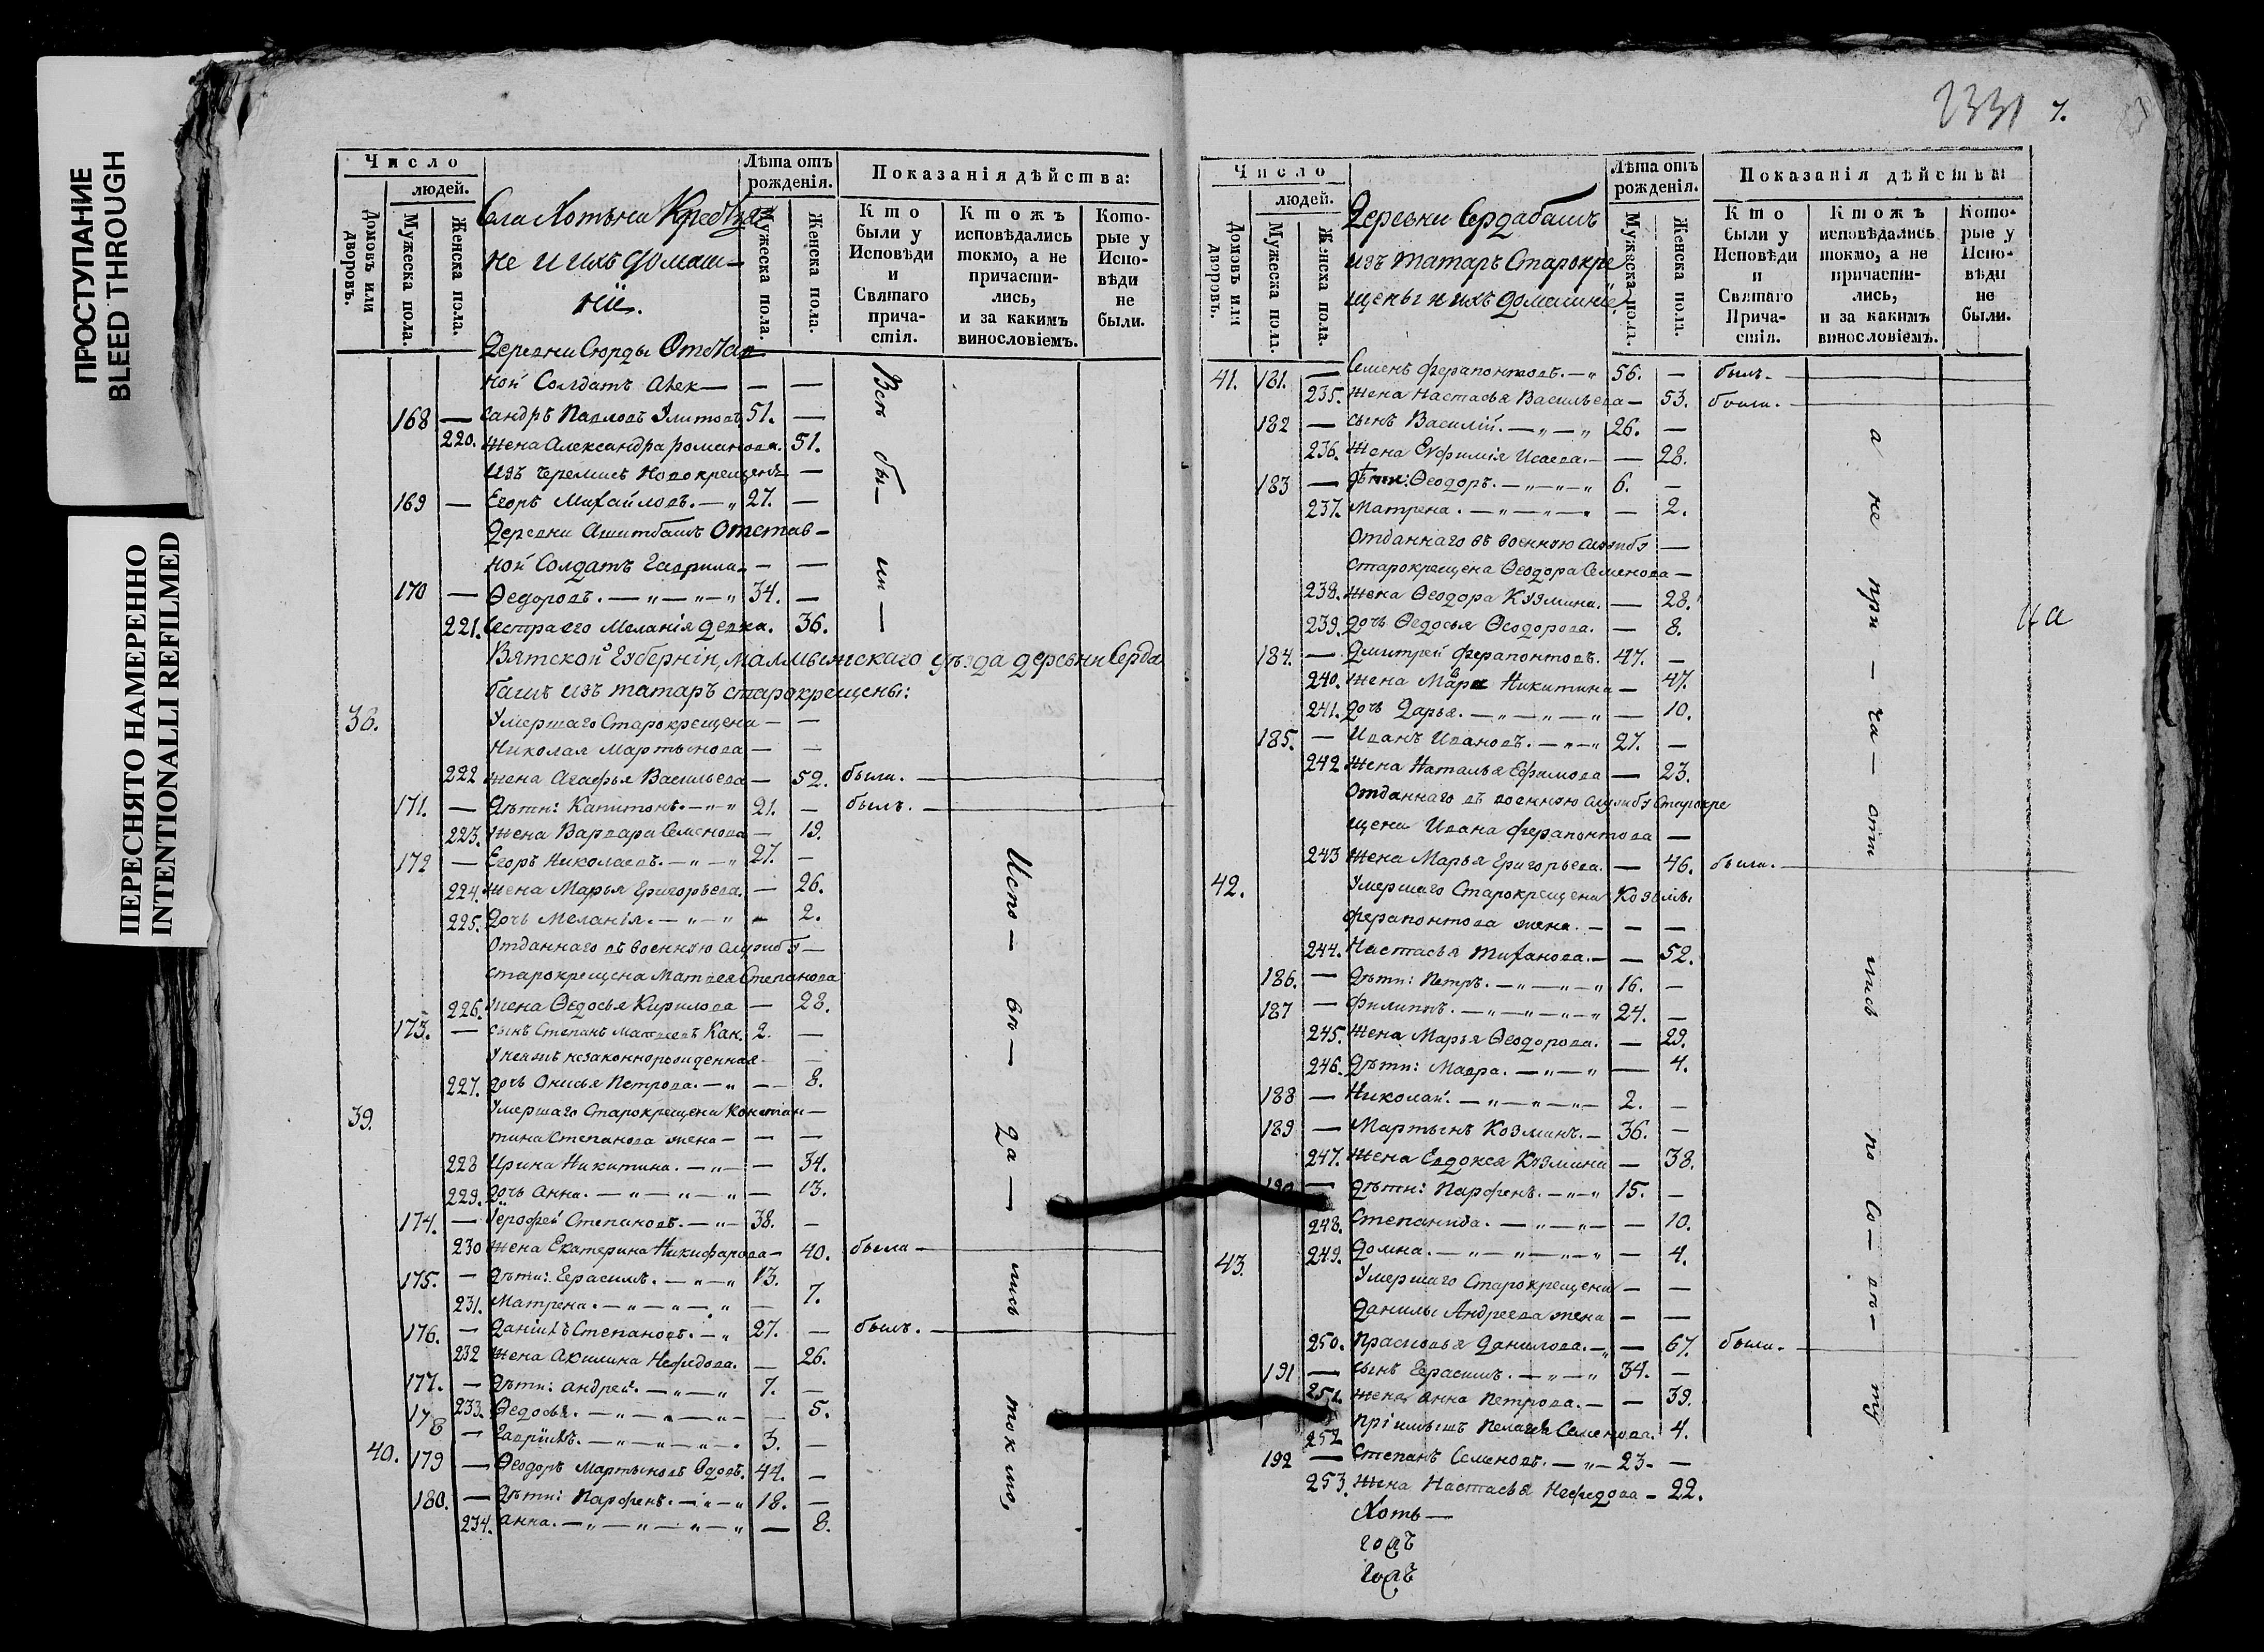 ПРОСТУПАНИЕ
BLEED THROUGH
ПЕРЕСНЯТО НАМЕРЕННО
INTENTIONALLI REFILMED
Число
людей.
Домовъ или дворовъ.
Мужеска пола.
Женска пола.
Села Хотьни
не и ихъ домаш-
ніи.
Лѣта отъ рожденія.
Мужеска пола.
Женска пола.
Показанія дѣйства:
Кто были у Исповѣди и Святаго причастія.
Ктожъ исповѣдались токмо, а не причастились, и за какимъ винословіемъ.
Которые у Исповѣди не были.
Деревни Сюрды Отстав
ной Солдатъ Алек— — —
168 — сандръ Павловъ Улитовъ 51. —
220. жена Александра Романова. 51.
Изъ Черемисъ Новокрещенъ —
169 — Егоръ Михайловъ. — „ 27. —
Деревни Ашитбашъ Отстав—
ной Солдатъ Гаврила — —
170 — Ѳедоровъ. — „ — „ — „ 34. —
221. Сестра его Меланія девка. 36.
Всѣ бы— ли —
Вятской Губерніи, Малмыжскаго уѣзда деревни Серда
башъ изъ татаръ старокрещены:
38. Умершаго Старокрещена — —
Николая Мартынова — —
222 жена Агафья Васильева — 52. была.
171. — Дѣти: Капитонъ. — „ — „ 21. — былъ.
223. жена Варвара Семенова — 19.
172 — Егоръ Николаевъ. — „ — „ 27. —
224. жена Марья Григорьева. — 26.
225. Дочь Меланія. — „ — „ — 2.
Отданнаго въ военную службу —
старокрещена Матвея Степанова
226. жена Ѳедосья Кирилова — 28.
173. — сынъ Степанъ Матвеевъ 2. —
У нея незаконнорожденная — —
227. дочь Онисья Петрова. — „ — 8.
39. Умершаго Старокрещена Констан —
тина Степанова жена — — —
228 Ирина Никитина. — „ — — 34.
229. Дочь Анна. — „ — „ — „ — 13.
174. — Іерофей Степановъ. — „ — 38. —
230 жена Екатерина Никифарова — 40. была —
175. — Дѣти: Герасимъ. — „ — „ 13.
231. Матрена. — „ — „ — „ — 7.
176. — Даніилъ Степановъ. — „ 27. — былъ.
232 жена Акилина Нефедова. — 26.
177. — Дѣти: Андрей. — „ — „ 7. —
233. Ѳедосья. — „ — „ — „ — — 5.
178 — Гавріилъ. — „ — „ — „ 3. —
40. 179 — Ѳеодоръ Мартыновъ вдовъ. 44. —
180. — Дѣти: Парфенъ. — „ — „ 18. —
234. Анна. — „ — „ — „ — „ — 8.
Испо— вѣ— да— лись токмо,
2331 7.
Число
людей.
Домовъ или дворовъ.
Мужеска пола.
Женска пола.
Деревни Сердабашъ
изъ татаръ Старокре
щены и ихъ домашніе
Лѣта отъ рожденія.
Мужеска пола.
Женска пола.
Показанія дѣйства
Кто были у Исповѣди и Святаго Причастія.
Ктожъ исповѣдались токмо, а не причастились, и за какимъ винословіемъ.
Которые у Исповѣди не были.
41. 181. — Семенъ Ферапонтовъ. — „ 56. — былъ.
235. жена Настасья Васильева — 53. была.
182 — сынъ Василій. — „ — „ 26. —
236. Жена Евфимія Исаева. — — 28.
183 — дѣти: Ѳеодоръ. — „ — „ — „ 6. —
237. Матрена. — „ — „ — „ — 2.
Отданнаго въ военную службу —
старокрещена Ѳеодора Семенова —
238. жена Ѳеодора Кузмина. — 28.
239. дочь Ѳедосья Ѳеодорова. — 8.
184. — Дмитрей Ферапонтовъ. 47. —
240. жена Мавра Никитина — 47.
241. дочь Дарья. — „ — „ — „ — 10.
185. — Иванъ Ивановъ. — „ — „ 27. —
242 жена Наталья Ефимова — 23.
Отданнаго въ военную службу Старокре
щена Ивана Ферапонтова —
243 жена Марья Григорьева. — 46. была.
42. Умершаго Старокрещена Козьмы
Ферапонтова жена. — — —
244. Настасья Тиханова. — — 52.
186. — Дѣти: Петръ. — „ — „ — „ 16. —
187 — Филиппъ. — „ — „ — „ — „ 24. —
245. жена Марья Ѳеодорова. — 29.
246. Дѣти: Мавра. — „ — „ — 4.
188 — Николай. — „ — „ — „ — 2. —
189 — Мартынъ Козминъ. — 36. —
247. жена Евдокея Кузмина — 38.
190 — дѣти: Парфенъ. — „ — „ 15. —
248. Степанида. — „ — „ — — 10.
249. Домна. — „ — „ — „ — „ — 4.
43. Умершаго Старокрещена — —
Данилы Андреева жена — —
250. Прасковья Данилова. — „ — 67. была.
191 — сынъ Герасимъ. — „ — „ 34. —
251. жена Анна Петрова. — — 39.
252 Пріимышъ Пелагея Семенова. 4.
192 — Степанъ Семеновъ. — „ — 23. —
253. Жена Настасья Нефедова — 22.
а не при — ча — сти лись по со — вѣ — ту
на
Хоть —